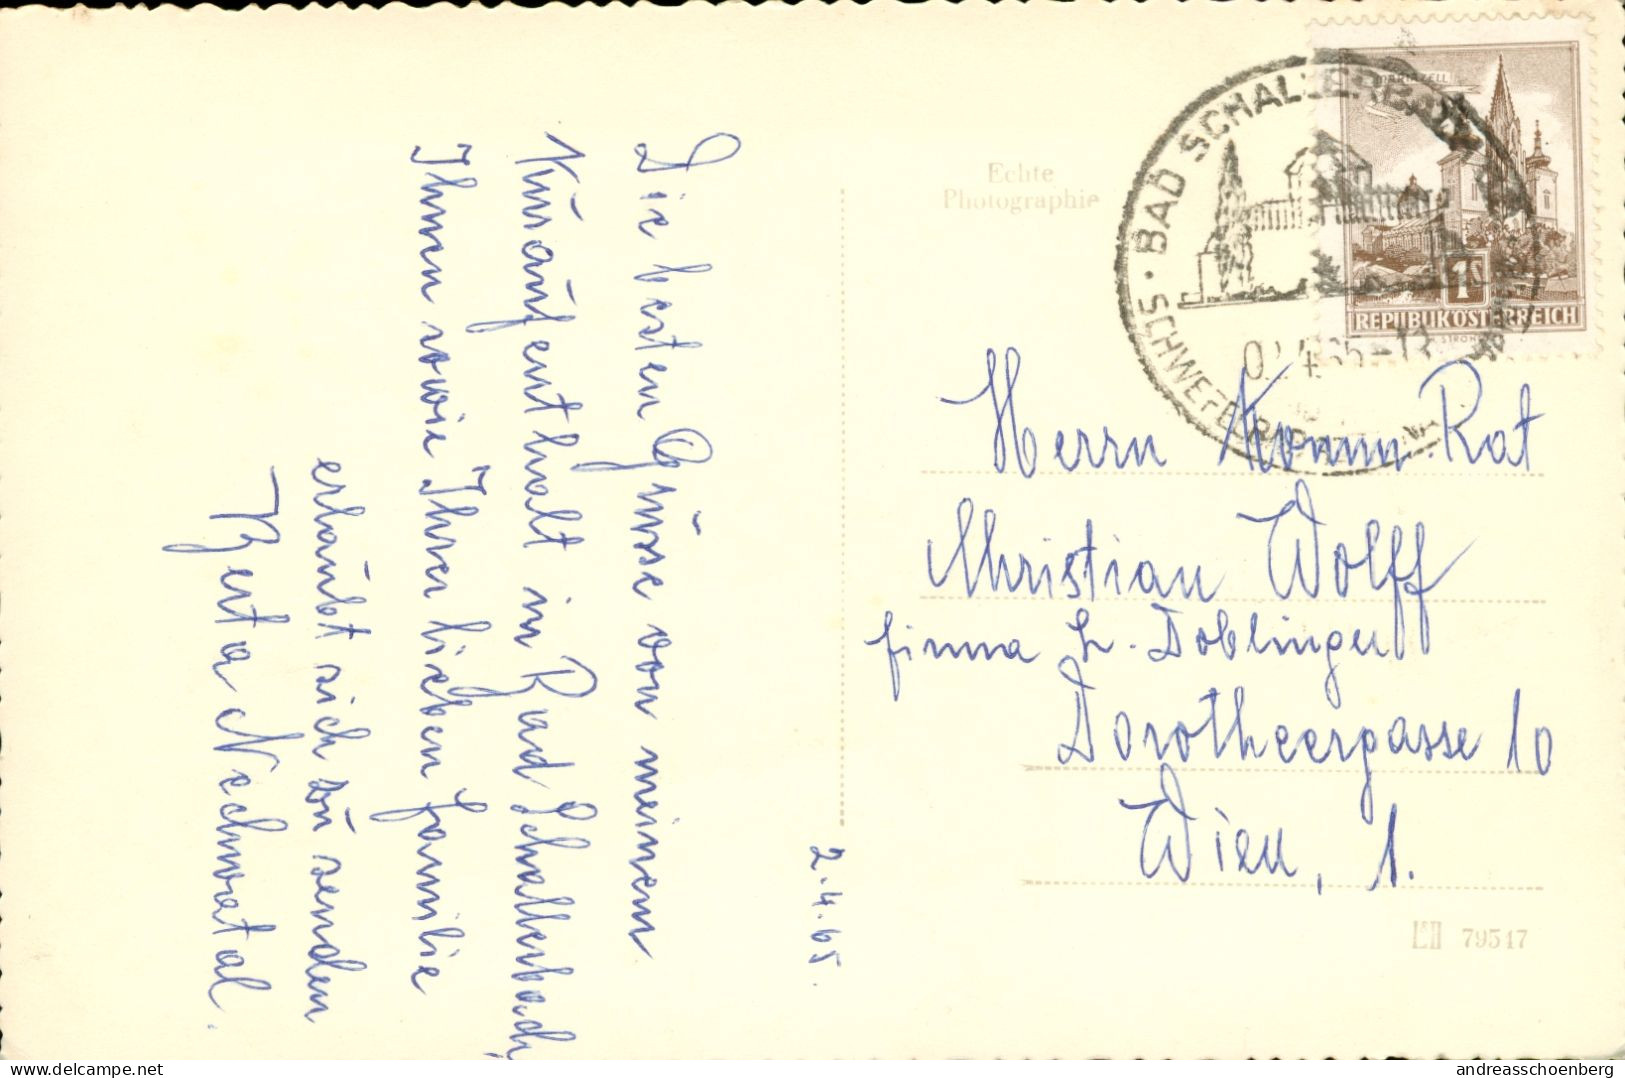 2.4.65.
Die besten Grüsse von meinem
Kuraufenthalt in Bad Schallerbach,
Ihnen sowie Ihrer lieben Familie
erlaubt sich zu senden
Berta Nechwatal.
Echte
Photographie
· BAD SCHALLERBACH
SCHWEFELBAD
4 65-13
MARIAZELL
1S
REPUBLIK ÖSTERREICH
Herrn Komm. Rat
Christian Wolff
firma L. Doblinger
Dorotheergasse 10
Wien, 1.
79547
hosted by delcampe.net
andreasschoenberg